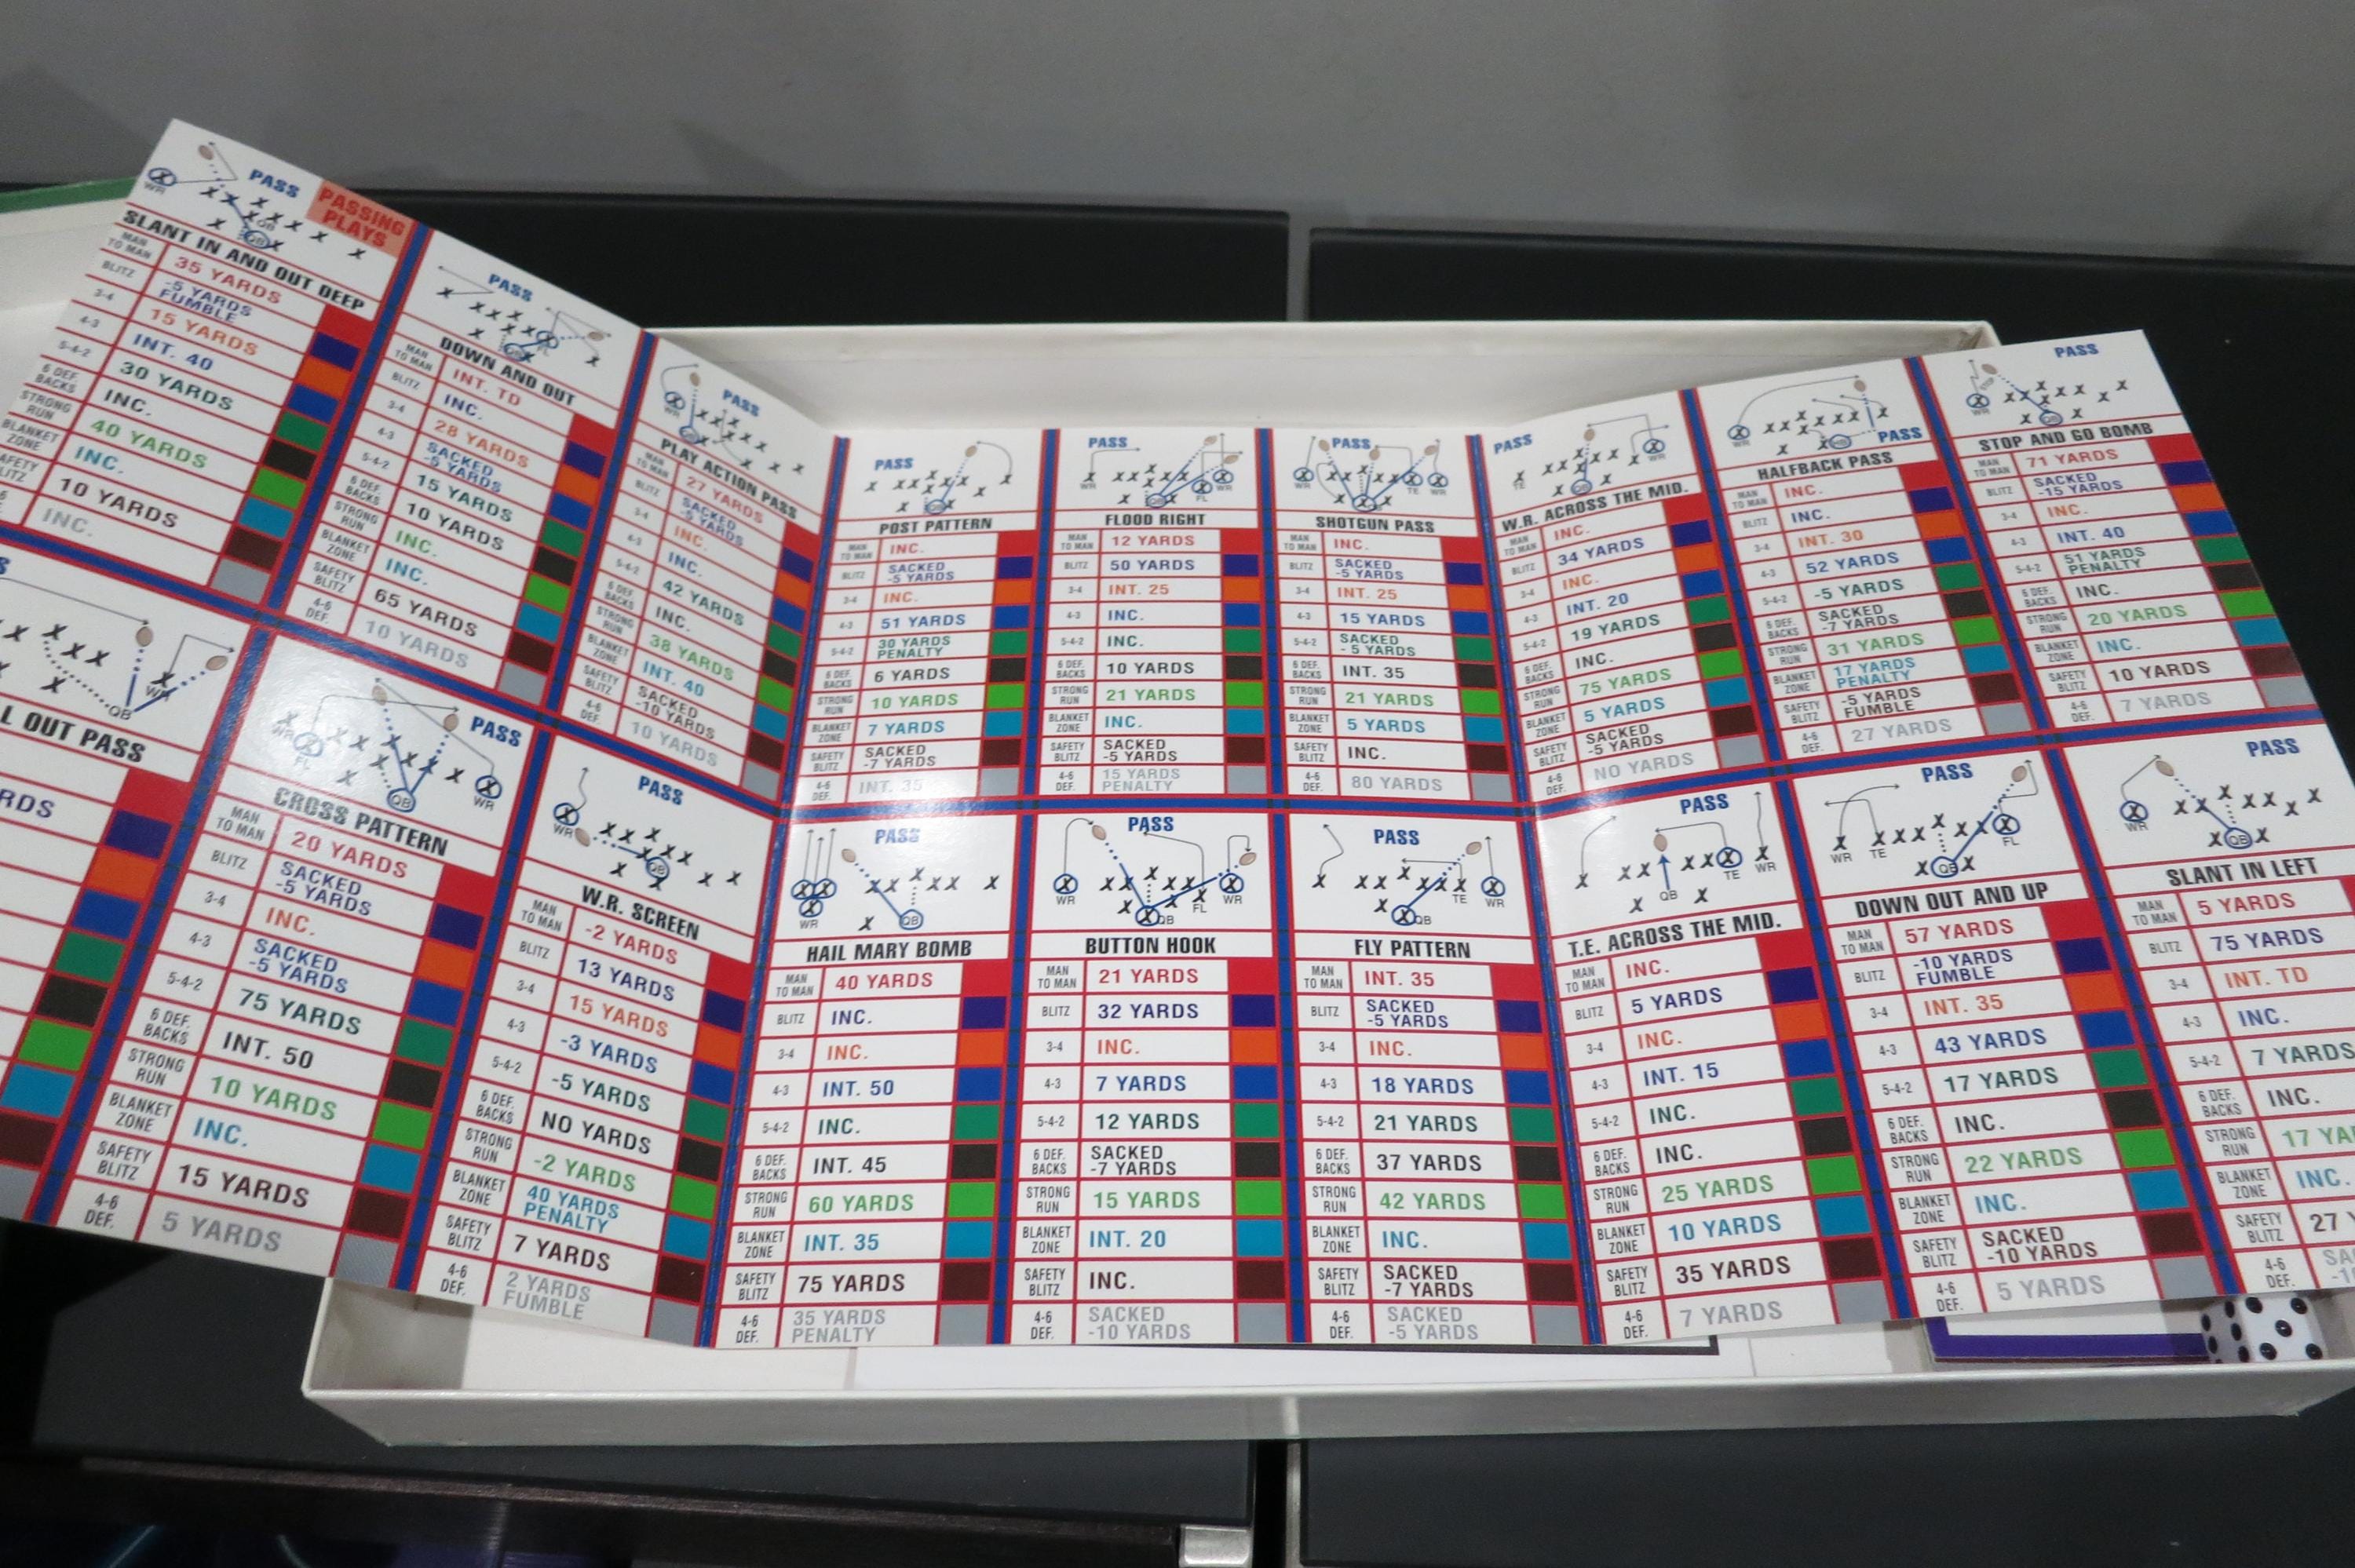 PASS
PASSING
PLAYS
WR
QB
SLANT IN AND OUT DEEP
MAN
TO MAN
35 YARDS
BLITZ
-5 YARDS
FUMBLE
3-4
15 YARDS
4-3
INT. 40
5-4-2
30 YARDS
6 DEF.
BACKS
INC.
STRONG
RUN
40 YARDS
BLANKET
ZONE
INC.
10 YARDS
INC.
PASS
FL
DOWN AND OUT
MAN
TO MAN
INT. TD
BLITZ
INC.
3-4
28 YARDS
4-3
SACKED
-5 YARDS
5-4-2
15 YARDS
6 DEF.
BACKS
10 YARDS
STRONG
RUN
INC.
BLANKET
ZONE
INC.
SAFETY
BLITZ
65 YARDS
4-6
DEF.
10 YARDS
PASS
WR
PLAY ACTION PASS
MAN
TO MAN
27 YARDS
BLITZ
SACKED
-5 YARDS
3-4
INC.
4-3
INC.
5-4-2
42 YARDS
6 DEF.
BACKS
INC.
STRONG
RUN
38 YARDS
BLANKET
ZONE
INT. 40
SAFETY
BLITZ
SACKED
-10 YARDS
4-6
DEF.
10 YARDS
PASS
QB
POST PATTERN
MAN
TO MAN
INC.
BLITZ
SACKED
-5 YARDS
3-4
INC.
4-3
51 YARDS
5-4-2
30 YARDS
PENALTY
6 DEF.
BACKS
6 YARDS
STRONG
RUN
10 YARDS
BLANKET
ZONE
7 YARDS
SAFETY
BLITZ
SACKED
-7 YARDS
4-6
DEF.
INT. 35
PASS
WR
QB
FL
WR
FLOOD RIGHT
MAN
TO MAN
12 YARDS
BLITZ
50 YARDS
3-4
INT. 25
4-3
INC.
5-4-2
INC.
6 DEF.
BACKS
10 YARDS
STRONG
RUN
21 YARDS
BLANKET
ZONE
INC.
SAFETY
BLITZ
SACKED
-5 YARDS
4-6
DEF.
15 YARDS
PENALTY
PASS
WR
TE
WR
SHOTGUN PASS
MAN
TO MAN
INC.
BLITZ
SACKED
-5 YARDS
3-4
INT. 25
4-3
15 YARDS
5-4-2
SACKED
- 5 YARDS
6 DEF.
BACKS
INT. 35
STRONG
RUN
21 YARDS
BLANKET
ZONE
5 YARDS
SAFETY
BLITZ
INC.
4-6
DEF.
80 YARDS
PASS
TE
QB
WR
W.R. ACROSS THE MID.
MAN
TO MAN
INC.
BLITZ
34 YARDS
3-4
INC.
4-3
INT. 20
5-4-2
19 YARDS
6 DEF.
BACKS
INC.
STRONG
RUN
75 YARDS
BLANKET
ZONE
5 YARDS
SAFETY
BLITZ
SACKED
-5 YARDS
4-6
DEF.
NO YARDS
WR
HB
PASS
HALFBACK PASS
MAN
TO MAN
INC.
BLITZ
INC.
3-4
INT. 30
4-3
52 YARDS
5-4-2
-5 YARDS
6 DEF.
BACKS
SACKED
-7 YARDS
STRONG
RUN
31 YARDS
BLANKET
ZONE
17 YARDS
PENALTY
SAFETY
BLITZ
-5 YARDS
FUMBLE
4-6
DEF.
27 YARDS
PASS
WR
QB
STOP AND GO BOMB
MAN
TO MAN
71 YARDS
BLITZ
SACKED
-15 YARDS
3-4
INC.
4-3
INT. 40
5-4-2
51 YARDS
PENALTY
6 DEF.
BACKS
INC.
STRONG
RUN
20 YARDS
BLANKET
ZONE
INC.
SAFETY
BLITZ
10 YARDS
4-6
DEF.
7 YARDS
WR
QB
L OUT PASS
RDS
PASS
WR
FL
QB
WR
CROSS PATTERN
MAN
TO MAN
20 YARDS
BLITZ
SACKED
-5 YARDS
3-4
INC.
4-3
SACKED
-5 YARDS
5-4-2
75 YARDS
6 DEF.
BACKS
INT. 50
STRONG
RUN
10 YARDS
BLANKET
ZONE
INC.
SAFETY
BLITZ
15 YARDS
4-6
DEF.
5 YARDS
PASS
WR
QB
W.R. SCREEN
MAN
TO MAN
-2 YARDS
BLITZ
13 YARDS
3-4
15 YARDS
4-3
-3 YARDS
5-4-2
-5 YARDS
6 DEF.
BACKS
NO YARDS
STRONG
RUN
-2 YARDS
BLANKET
ZONE
40 YARDS
PENALTY
SAFETY
BLITZ
7 YARDS
4-6
DEF.
2 YARDS
FUMBLE
PASS
WR
QB
HAIL MARY BOMB
MAN
TO MAN
40 YARDS
BLITZ
INC.
3-4
INC.
4-3
INT. 50
5-4-2
INC.
6 DEF.
BACKS
INT. 45
STRONG
RUN
60 YARDS
BLANKET
ZONE
INT. 35
SAFETY
BLITZ
75 YARDS
4-6
DEF.
35 YARDS
PENALTY
PASS
WR
QB
FL
WR
BUTTON HOOK
MAN
TO MAN
21 YARDS
BLITZ
32 YARDS
3-4
INC.
4-3
7 YARDS
5-4-2
12 YARDS
6 DEF.
BACKS
SACKED
-7 YARDS
STRONG
RUN
15 YARDS
BLANKET
ZONE
INT. 20
SAFETY
BLITZ
INC.
4-6
DEF.
SACKED
-10 YARDS
PASS
QB
TE
WR
FLY PATTERN
MAN
TO MAN
INT. 35
BLITZ
SACKED
-5 YARDS
3-4
INC.
4-3
18 YARDS
5-4-2
21 YARDS
6 DEF.
BACKS
37 YARDS
STRONG
RUN
42 YARDS
BLANKET
ZONE
INC.
SAFETY
BLITZ
SACKED
-7 YARDS
4-6
DEF.
SACKED
-5 YARDS
PASS
QB
TE
WR
T.E. ACROSS THE MID.
MAN
TO MAN
INC.
BLITZ
5 YARDS
3-4
INC.
4-3
INT. 15
5-4-2
INC.
6 DEF.
BACKS
INC.
STRONG
RUN
25 YARDS
BLANKET
ZONE
10 YARDS
SAFETY
BLITZ
35 YARDS
4-6
DEF.
7 YARDS
PASS
WR
TE
QB
FL
DOWN OUT AND UP
MAN
TO MAN
57 YARDS
BLITZ
-10 YARDS
FUMBLE
3-4
INT. 35
4-3
43 YARDS
5-4-2
17 YARDS
6 DEF.
BACKS
INC.
STRONG
RUN
22 YARDS
BLANKET
ZONE
INC.
SAFETY
BLITZ
SACKED
-10 YARDS
4-6
DEF.
5 YARDS
PASS
WR
QB
SLANT IN LEFT
MAN
TO MAN
5 YARDS
BLITZ
75 YARDS
3-4
INT. TD
4-3
INC.
5-4-2
7 YARDS
6 DEF.
BACKS
INC.
STRONG
RUN
17 YA
BLANKET
ZONE
INC.
SAFETY
BLITZ
27 Y
4-6
DEF.